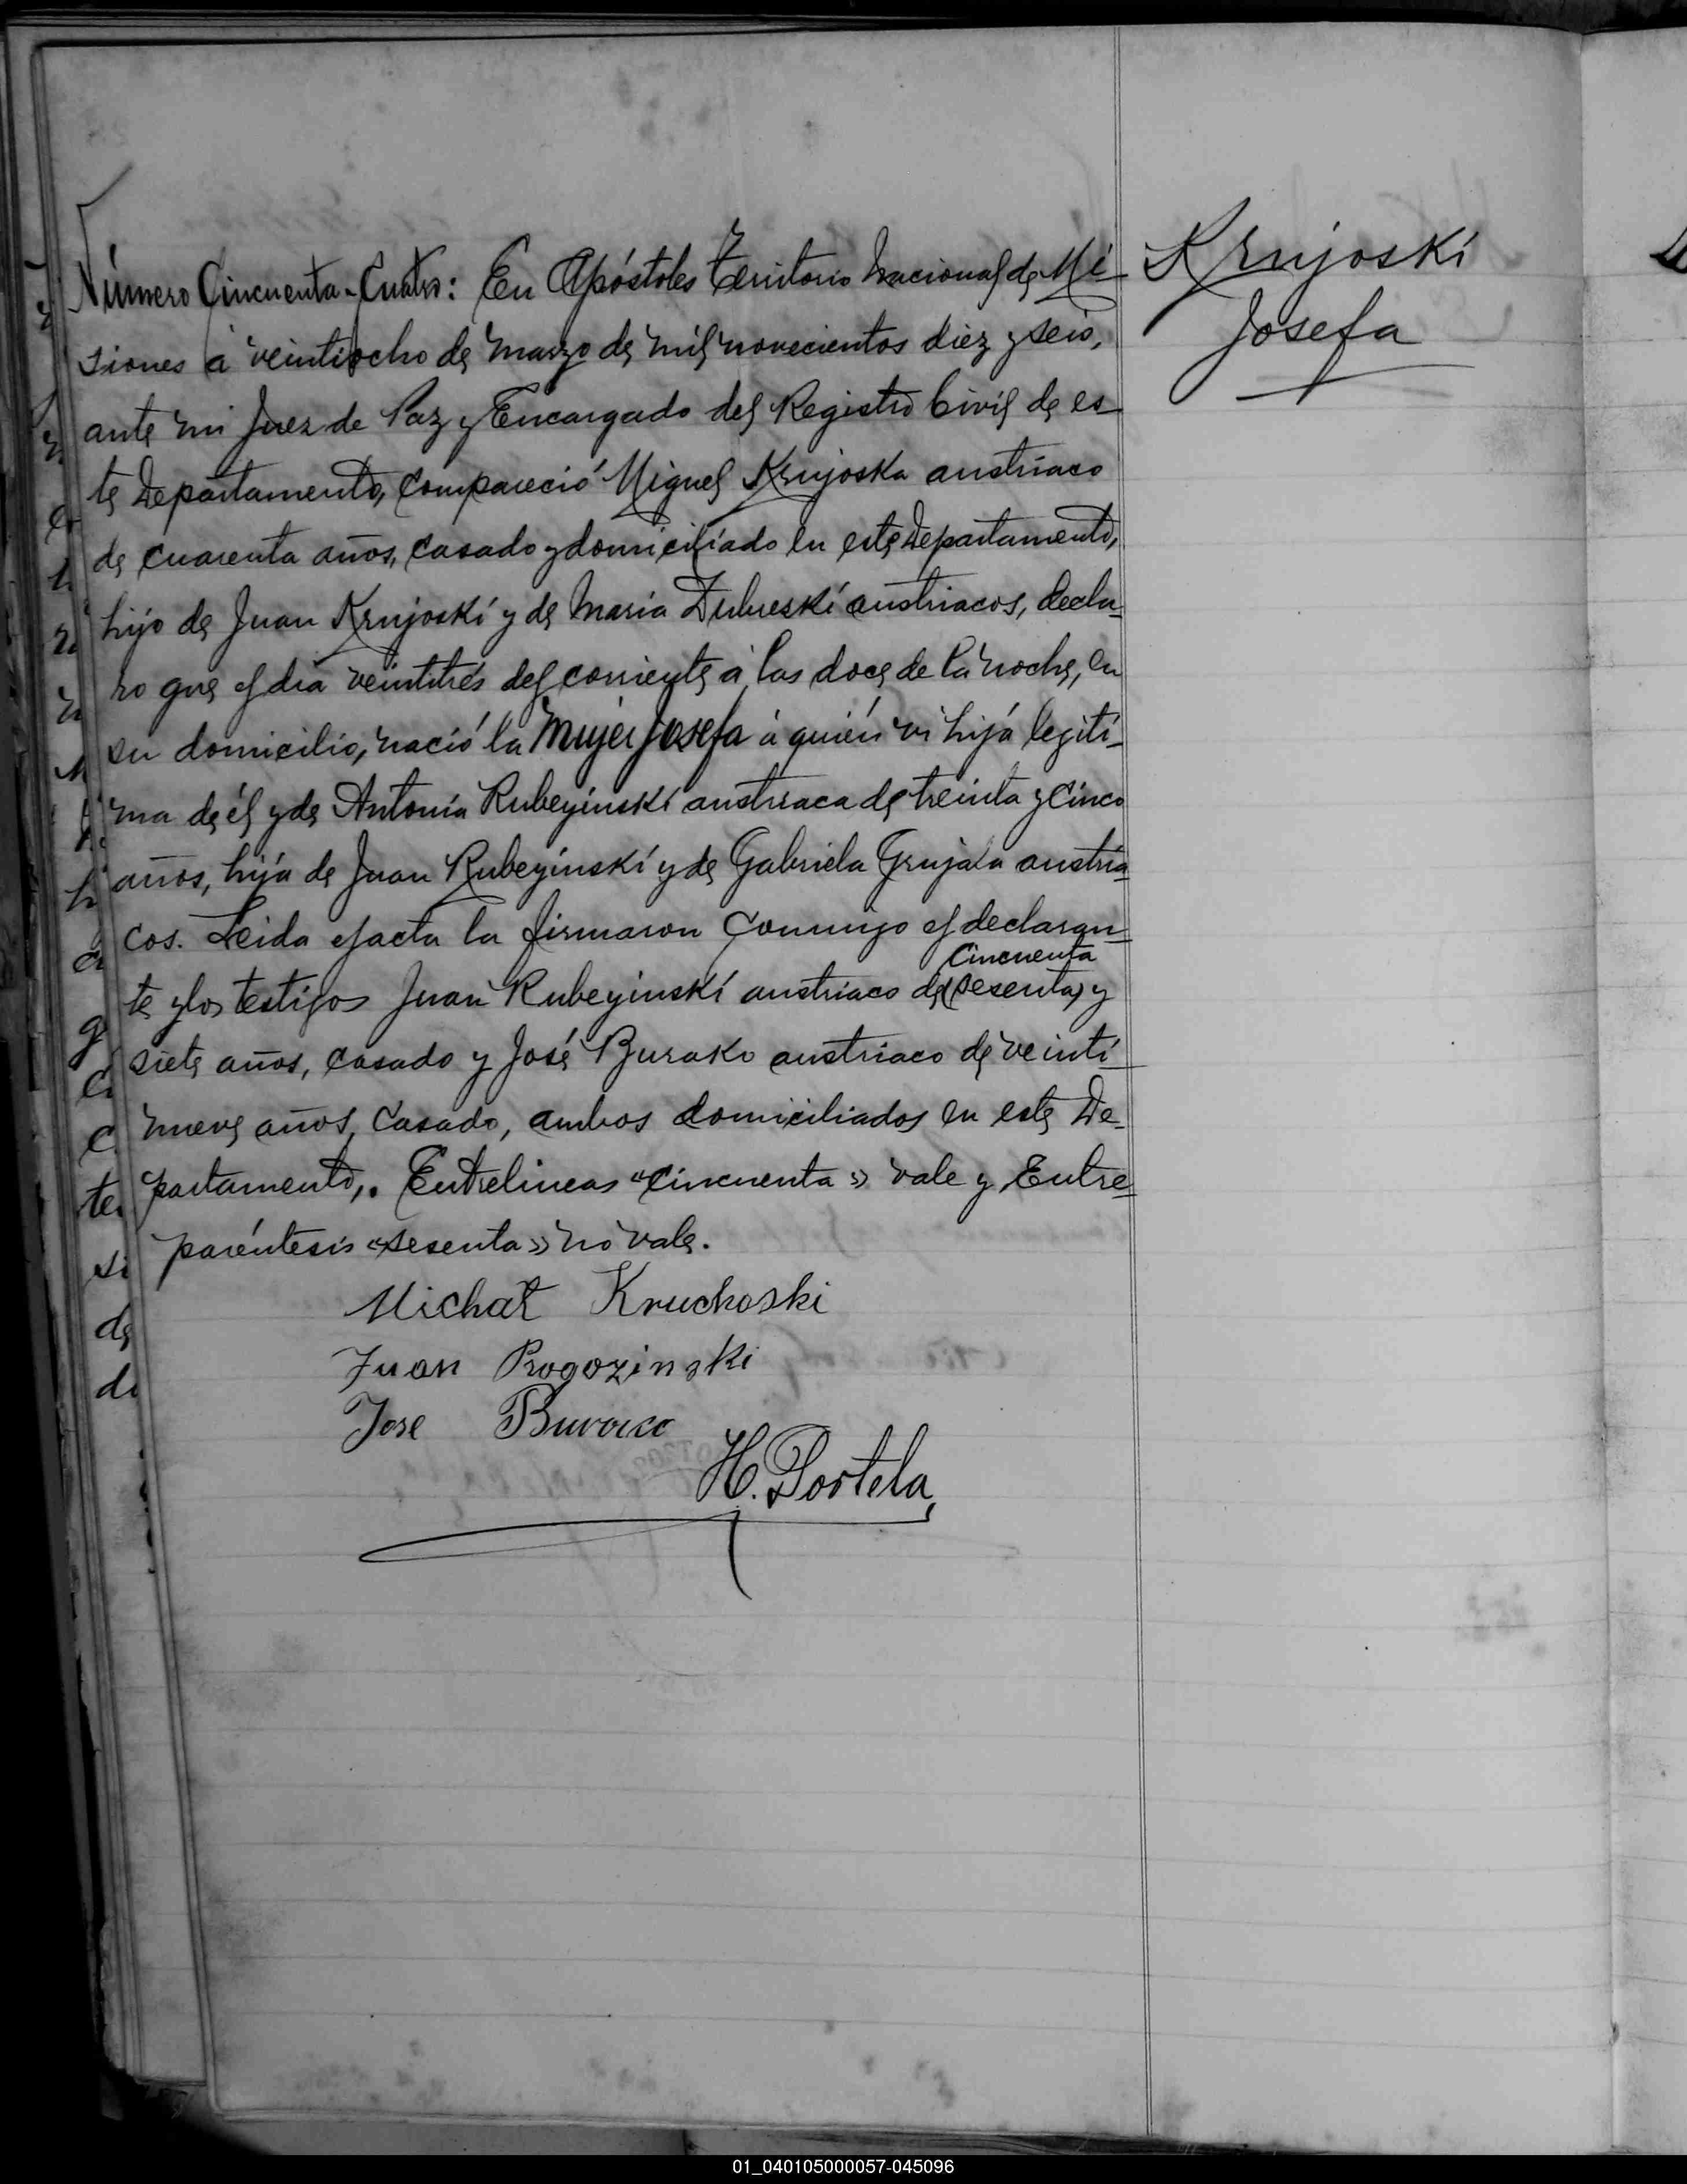 Krujoski
Josefa
Número Cincuenta-Cuatro: En Apóstoles Territorio Nacional de Mi-
siones a veintiocho de Marzo de mil novecientos diez y seis,
ante mi Juez de Paz y Encargado del Registro Civil de es-
te Departamento, compareció Miguel Krujoska austriaco
de cuarenta años, casado y domiciliado en este Departamento,
hijo de Juan Krujoski y de Maria Dubreski austriacos, decla-
ro que el dia veintitrés del corriente á las doce de la noche, en
su domicilio, nació la Mujer Josefa á quién vi hija legiti-
ma de él y de Antonia Rubeyinski austriaca de treinta y cinco
años, hija de Juan Rubeyinski y de Gabriela Grujala austria-
cos. Leida el acta la firmaron conmigo el declaran-
cincuenta
te y los testigos Juan Rubeyinski austriaco de (sesenta) y
siete años, casado y José Burako austriaco de veinti-
nueve años, casado, ambos domiciliados en este De-
partamento,. Entrelineas "cincuenta" vale y Entre-
paréntesis "sesenta" no vale.
Michał Kruchoski
Juan Rogozinski
Jose Buraco
H. Portela
01_040105000057-045096